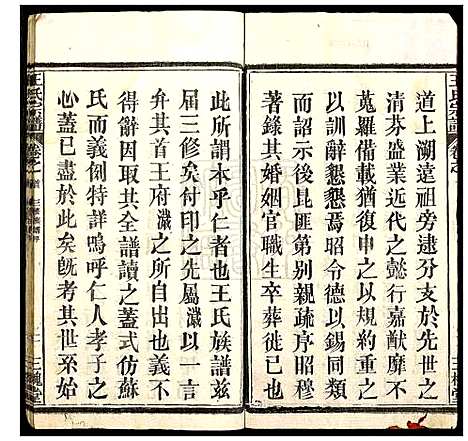 道上溯遠祖旁逮分支於先世之
清芬盛業近代之懿行嘉猷靡不
蒐羅備載猶復申之以規約重之
以訓辭懇懇焉昭令德以錫同類
而詔示後昆匪第別親疏序昭穆
著錄其婚姻官職生卒葬徙已也
此所謂本乎仁者也王氏族譜茲
屆三修矣付印之先屬瀻以一言
為首王府瀻之所自出也義不
得辭因取其全譜讀之蓋式仿蘇
氏而義例特詳嗚呼仁人孝子之
心蓋已盡於此矣既考其世系始
王氏宗譜
卷之一
三槐堂